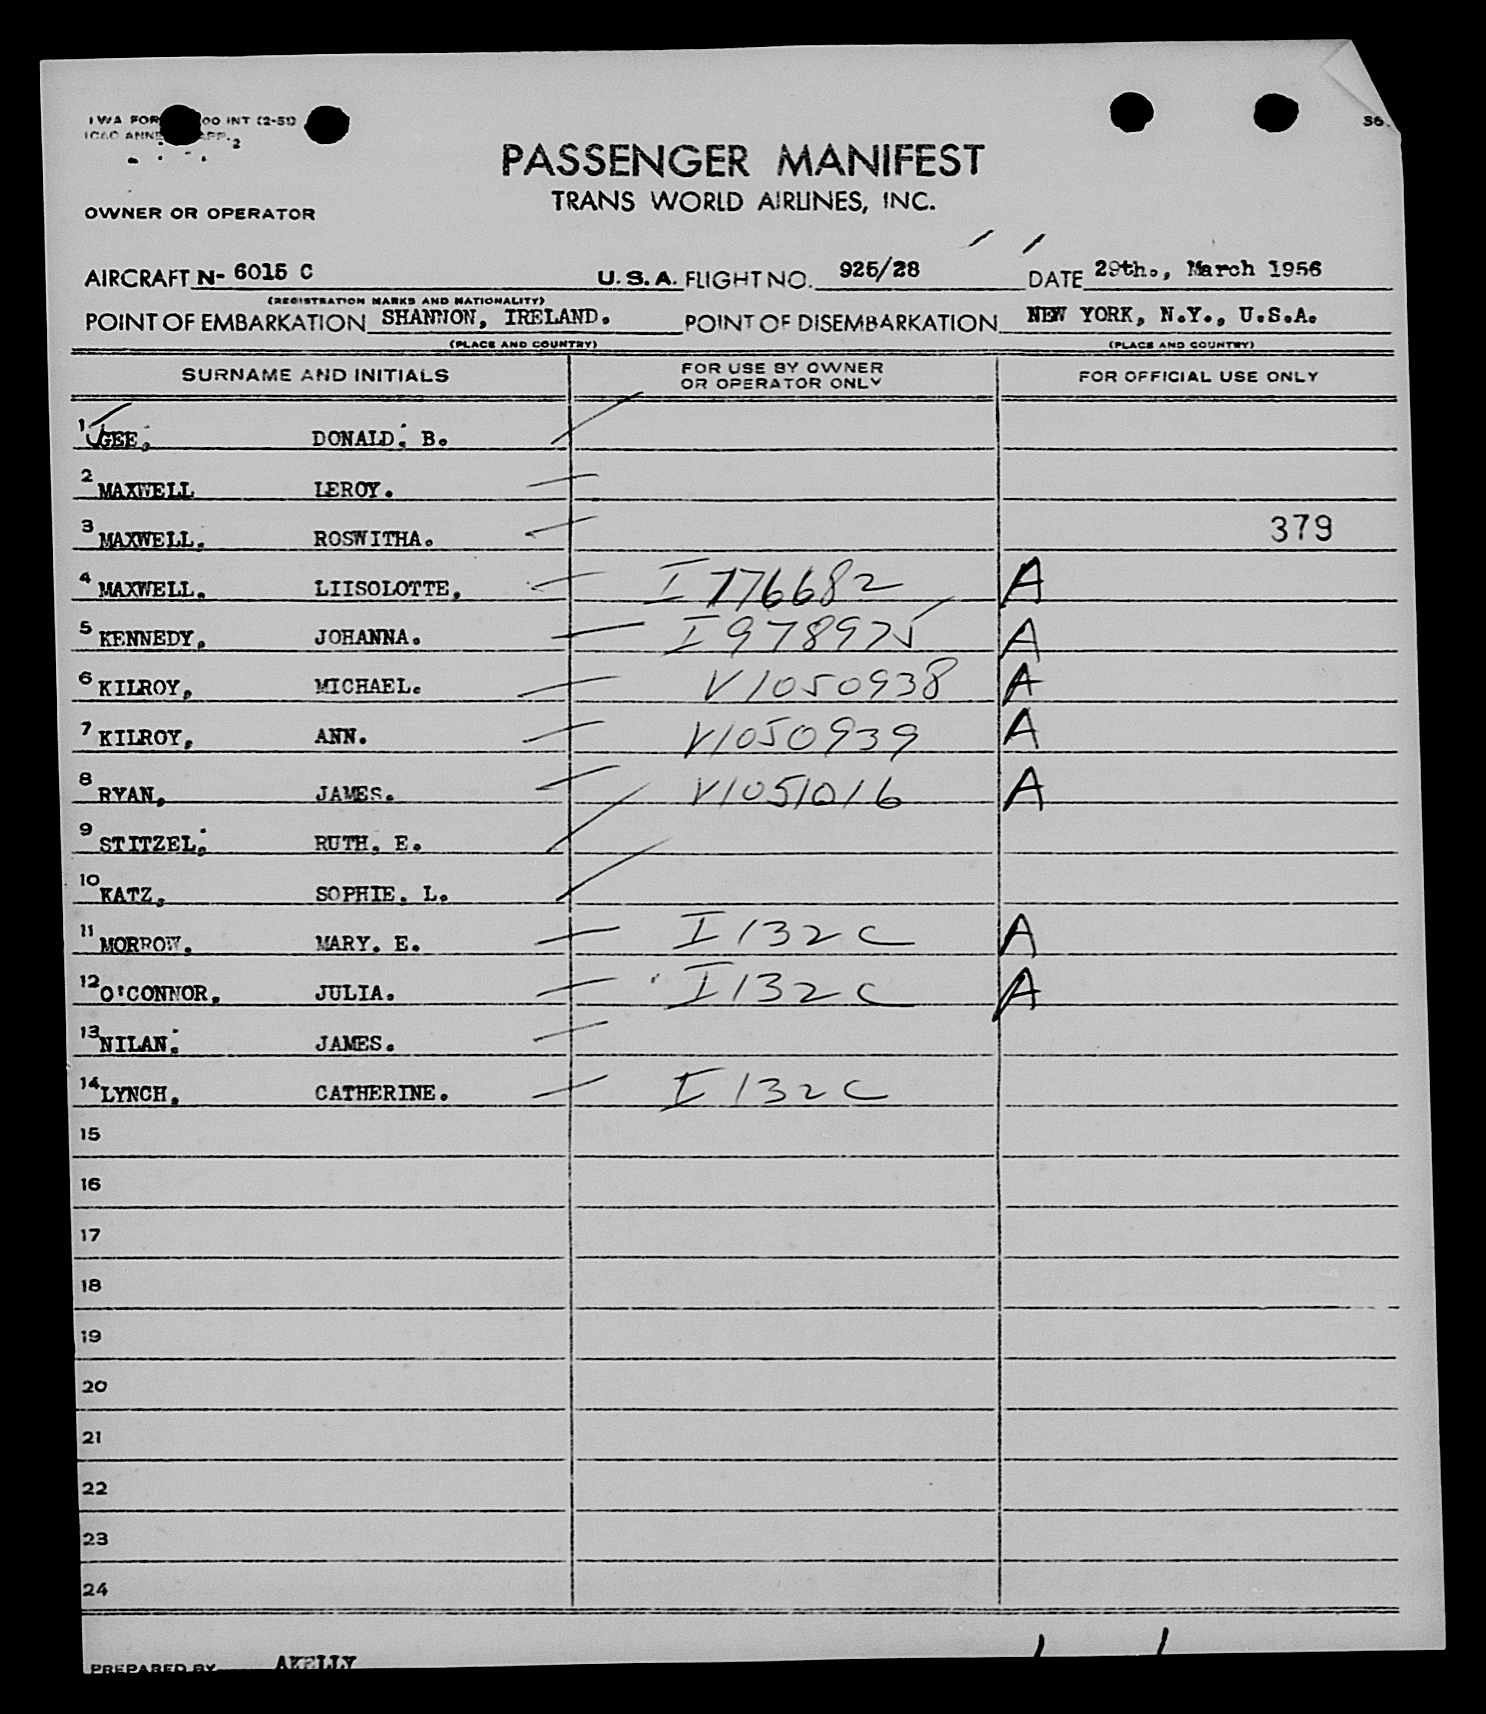 TWA FOR OO INT (2-51)
ICAO ANNE APP. 2
S6
PASSENGER MANIFEST
TRANS WORLD AIRLINES, INC.
OWNER OR OPERATOR
AIRCRAFT N- 6015 C U.S.A. FLIGHT NO. 925/28 DATE 29th., March 1956
(REGISTRATION MARKS AND NATIONALITY)
POINT OF EMBARKATION SHANNON, IRELAND. POINT OF DISEMBARKATION NEW YORK, N.Y., U.S.A.
(PLACE AND COUNTRY) (PLACE AND COUNTRY)
SURNAME AND INITIALS FOR USE BY OWNER OR OPERATOR ONLY FOR OFFICIAL USE ONLY
1 GEE, DONALD. B.
2 MAXWELL LEROY.
3 MAXWELL. ROSWITHA. 379
4 MAXWELL. LIISOLOTTE, I 776682 A
5 KENNEDY, JOHANNA. I 978975 A
6 KILROY, MICHAEL. V1050938 A
7 KILROY, ANN. V1050939 A
8 RYAN, JAMES. V1051016 A
9 STITZEL, RUTH. E.
10 KATZ, SOPHIE. L.
11 MORROW, MARY. E. I 132 C A
12 O'CONNOR, JULIA. I 132 C A
13 NILAN. JAMES.
14 LYNCH, CATHERINE. I 132 C
15
16
17
18
19
20
21
22
23
24
PREPARED BY AKELLY